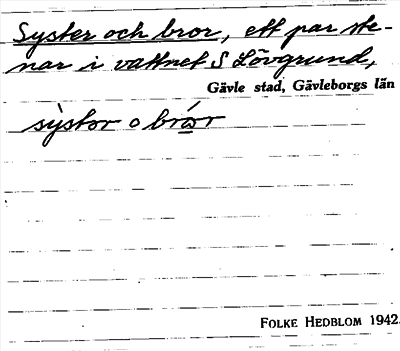 Syster och bror, ett par ste-
nar i vattnet S Lövgrund,
Gävle stad, Gävleborgs län
sỳstor o brór
FOLKE HEDBLOM 1942.